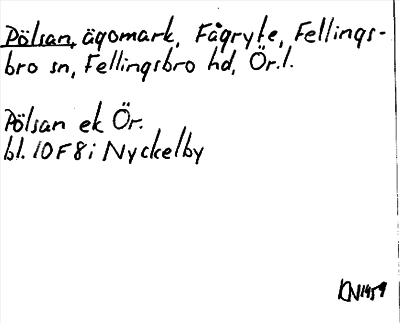 Pölsan, ägomark, Fågryte, Fellings-
bro sn, Fellingsbro hd, Ör.l.
Pölsan ek Ör.
bl. 10F8i Nyckelby
KN1959